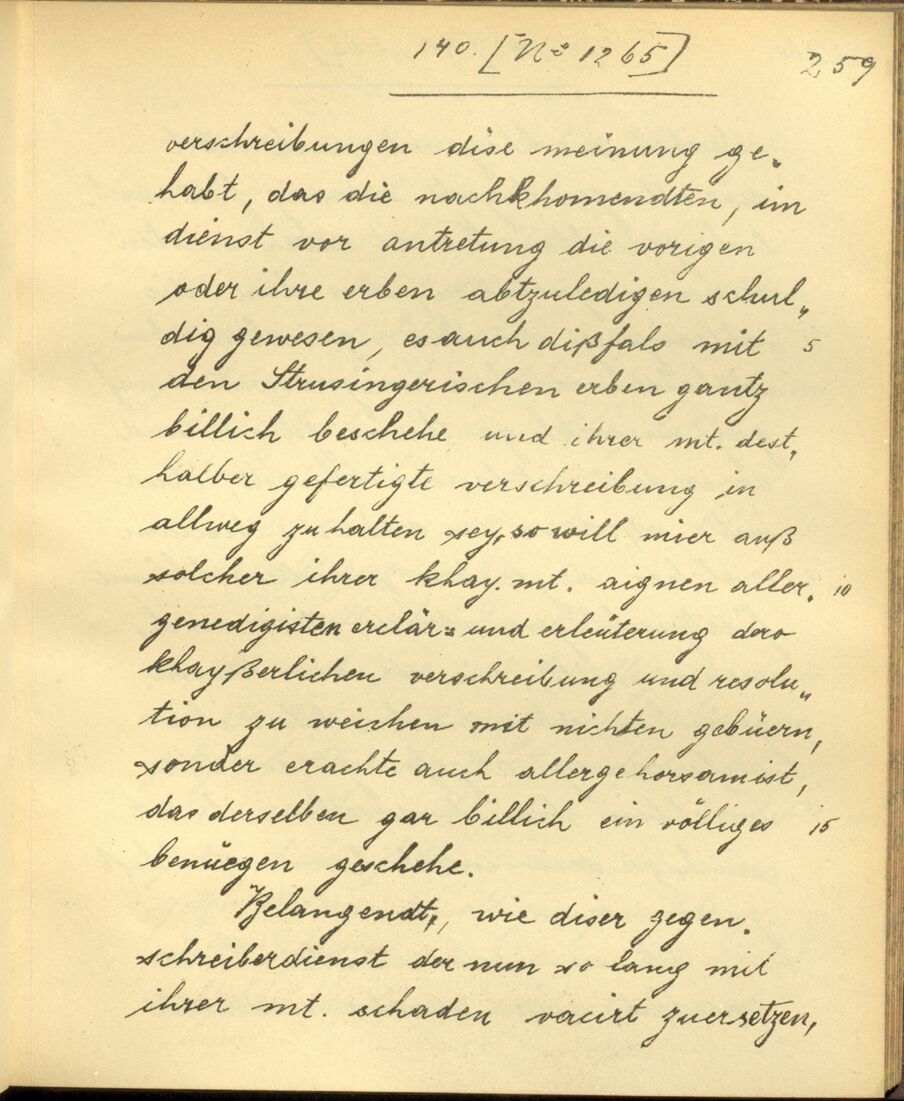 140. [Nº 1265]
259
verschreibungen dise meinung ge„
habt, das die nachkhomendten, im
dienst vor antretung die vorigen
oder ihre erben abtzuledigen schul„
dig gewesen, es auch dißfals mit 5
den Strusingerischen erben gantz
billich beschehe und ihrer mt. dest„
halber gefertigte verschreibung in
allweg zu halten sey, so will mier auß
solcher ihrer khay. mt. aignen aller„ 10
genedigisten erclär= und erleüterung dero
khayßerlichen verschreibung und resolu„
tion zu weichen mit nichten gebüern,
sonder erachte auch allergehorsamist,
das derselben gar billich ein völliges 15
benüegen geschehe.
Belangendt, wie diser gegen„
schreiberdienst der nun so lang mit
ihrer mt. schaden vacirt zuersetzen,